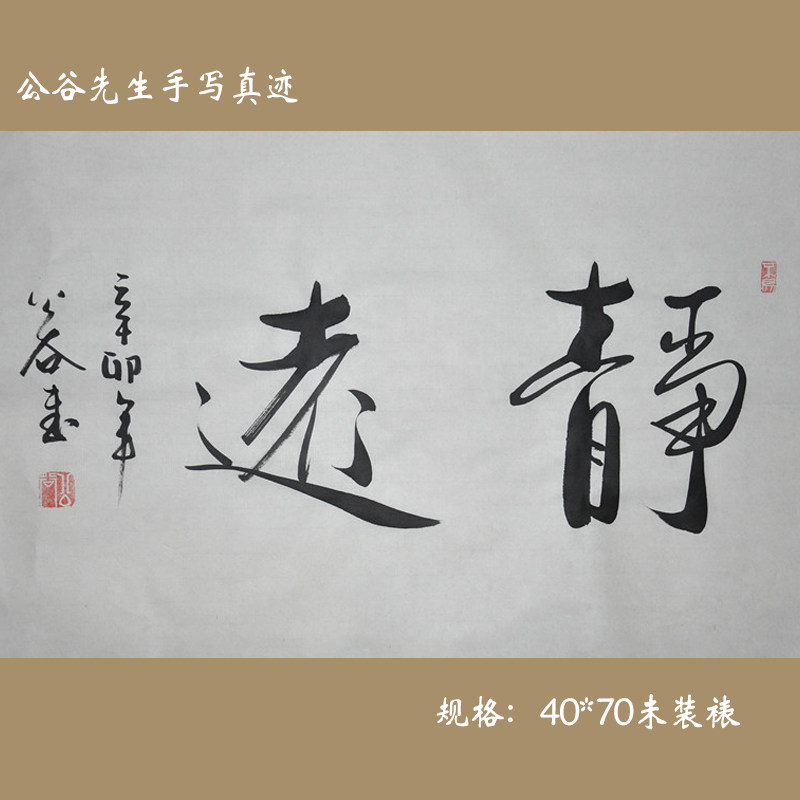 公谷先生手写真迹
靜遠
辛卯年
公谷书
规格：40*70未装裱